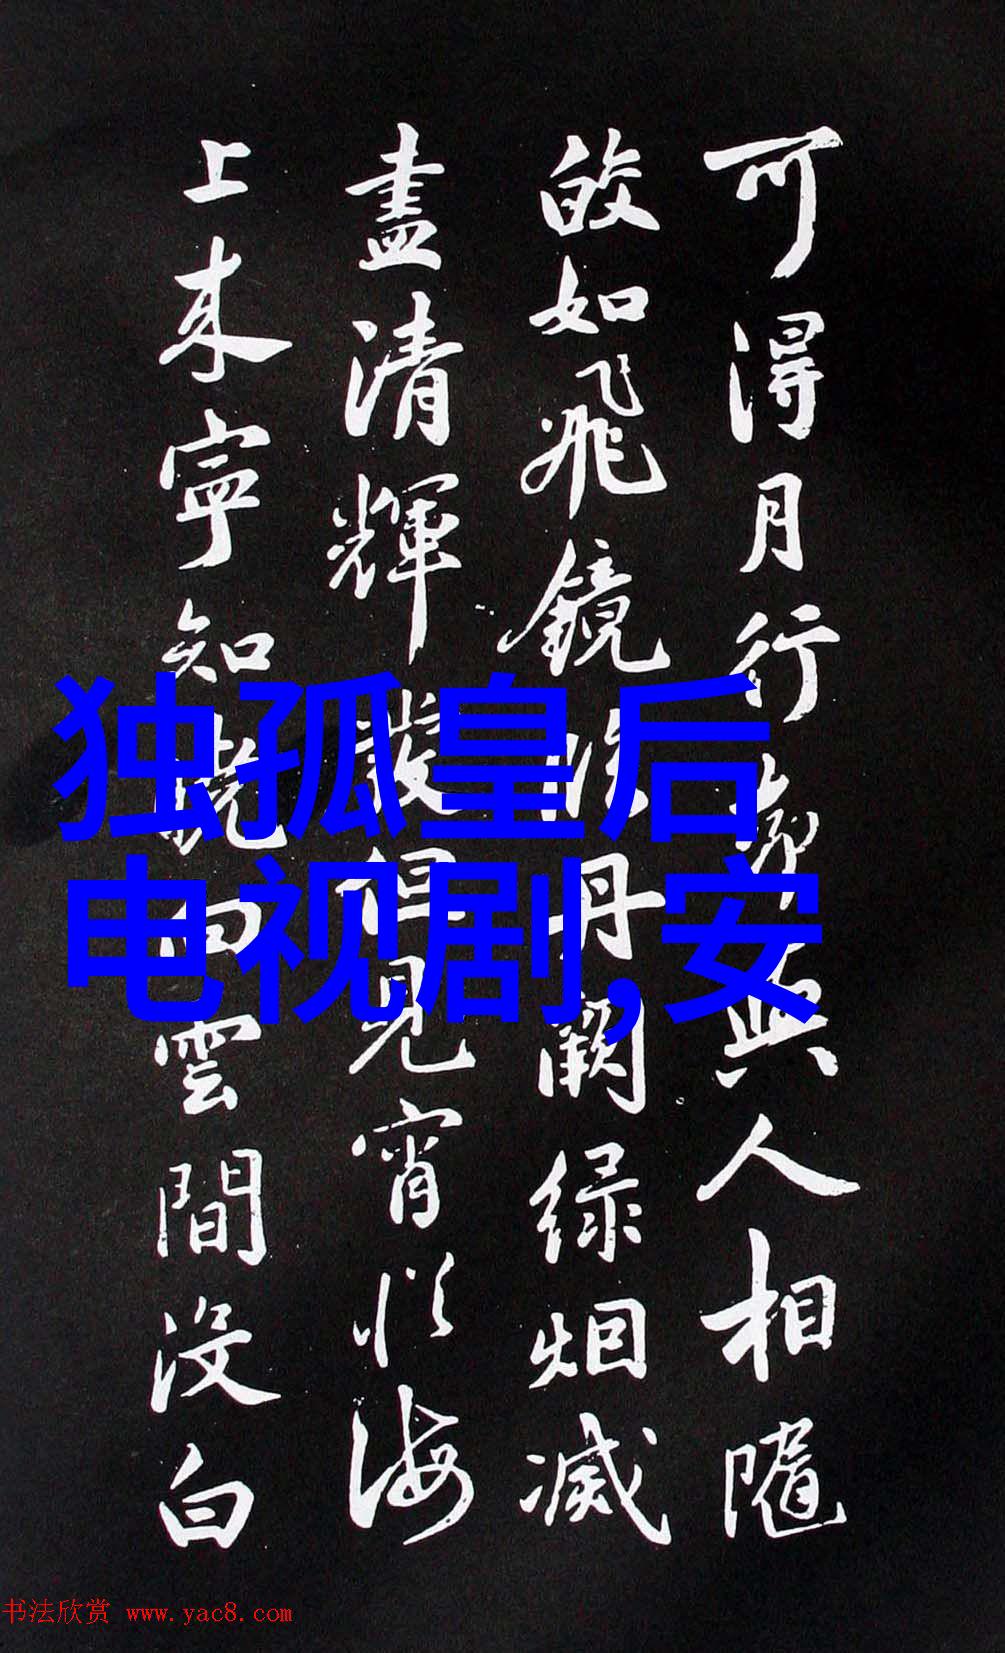 可得月行却與人相隨
皎如飛鏡臨丹闕绿烟滅
盡清輝發但見宵從海
上來寧知曉向雲間沒白
独孤皇后
电视剧,安
书法欣赏 www.yac8.com